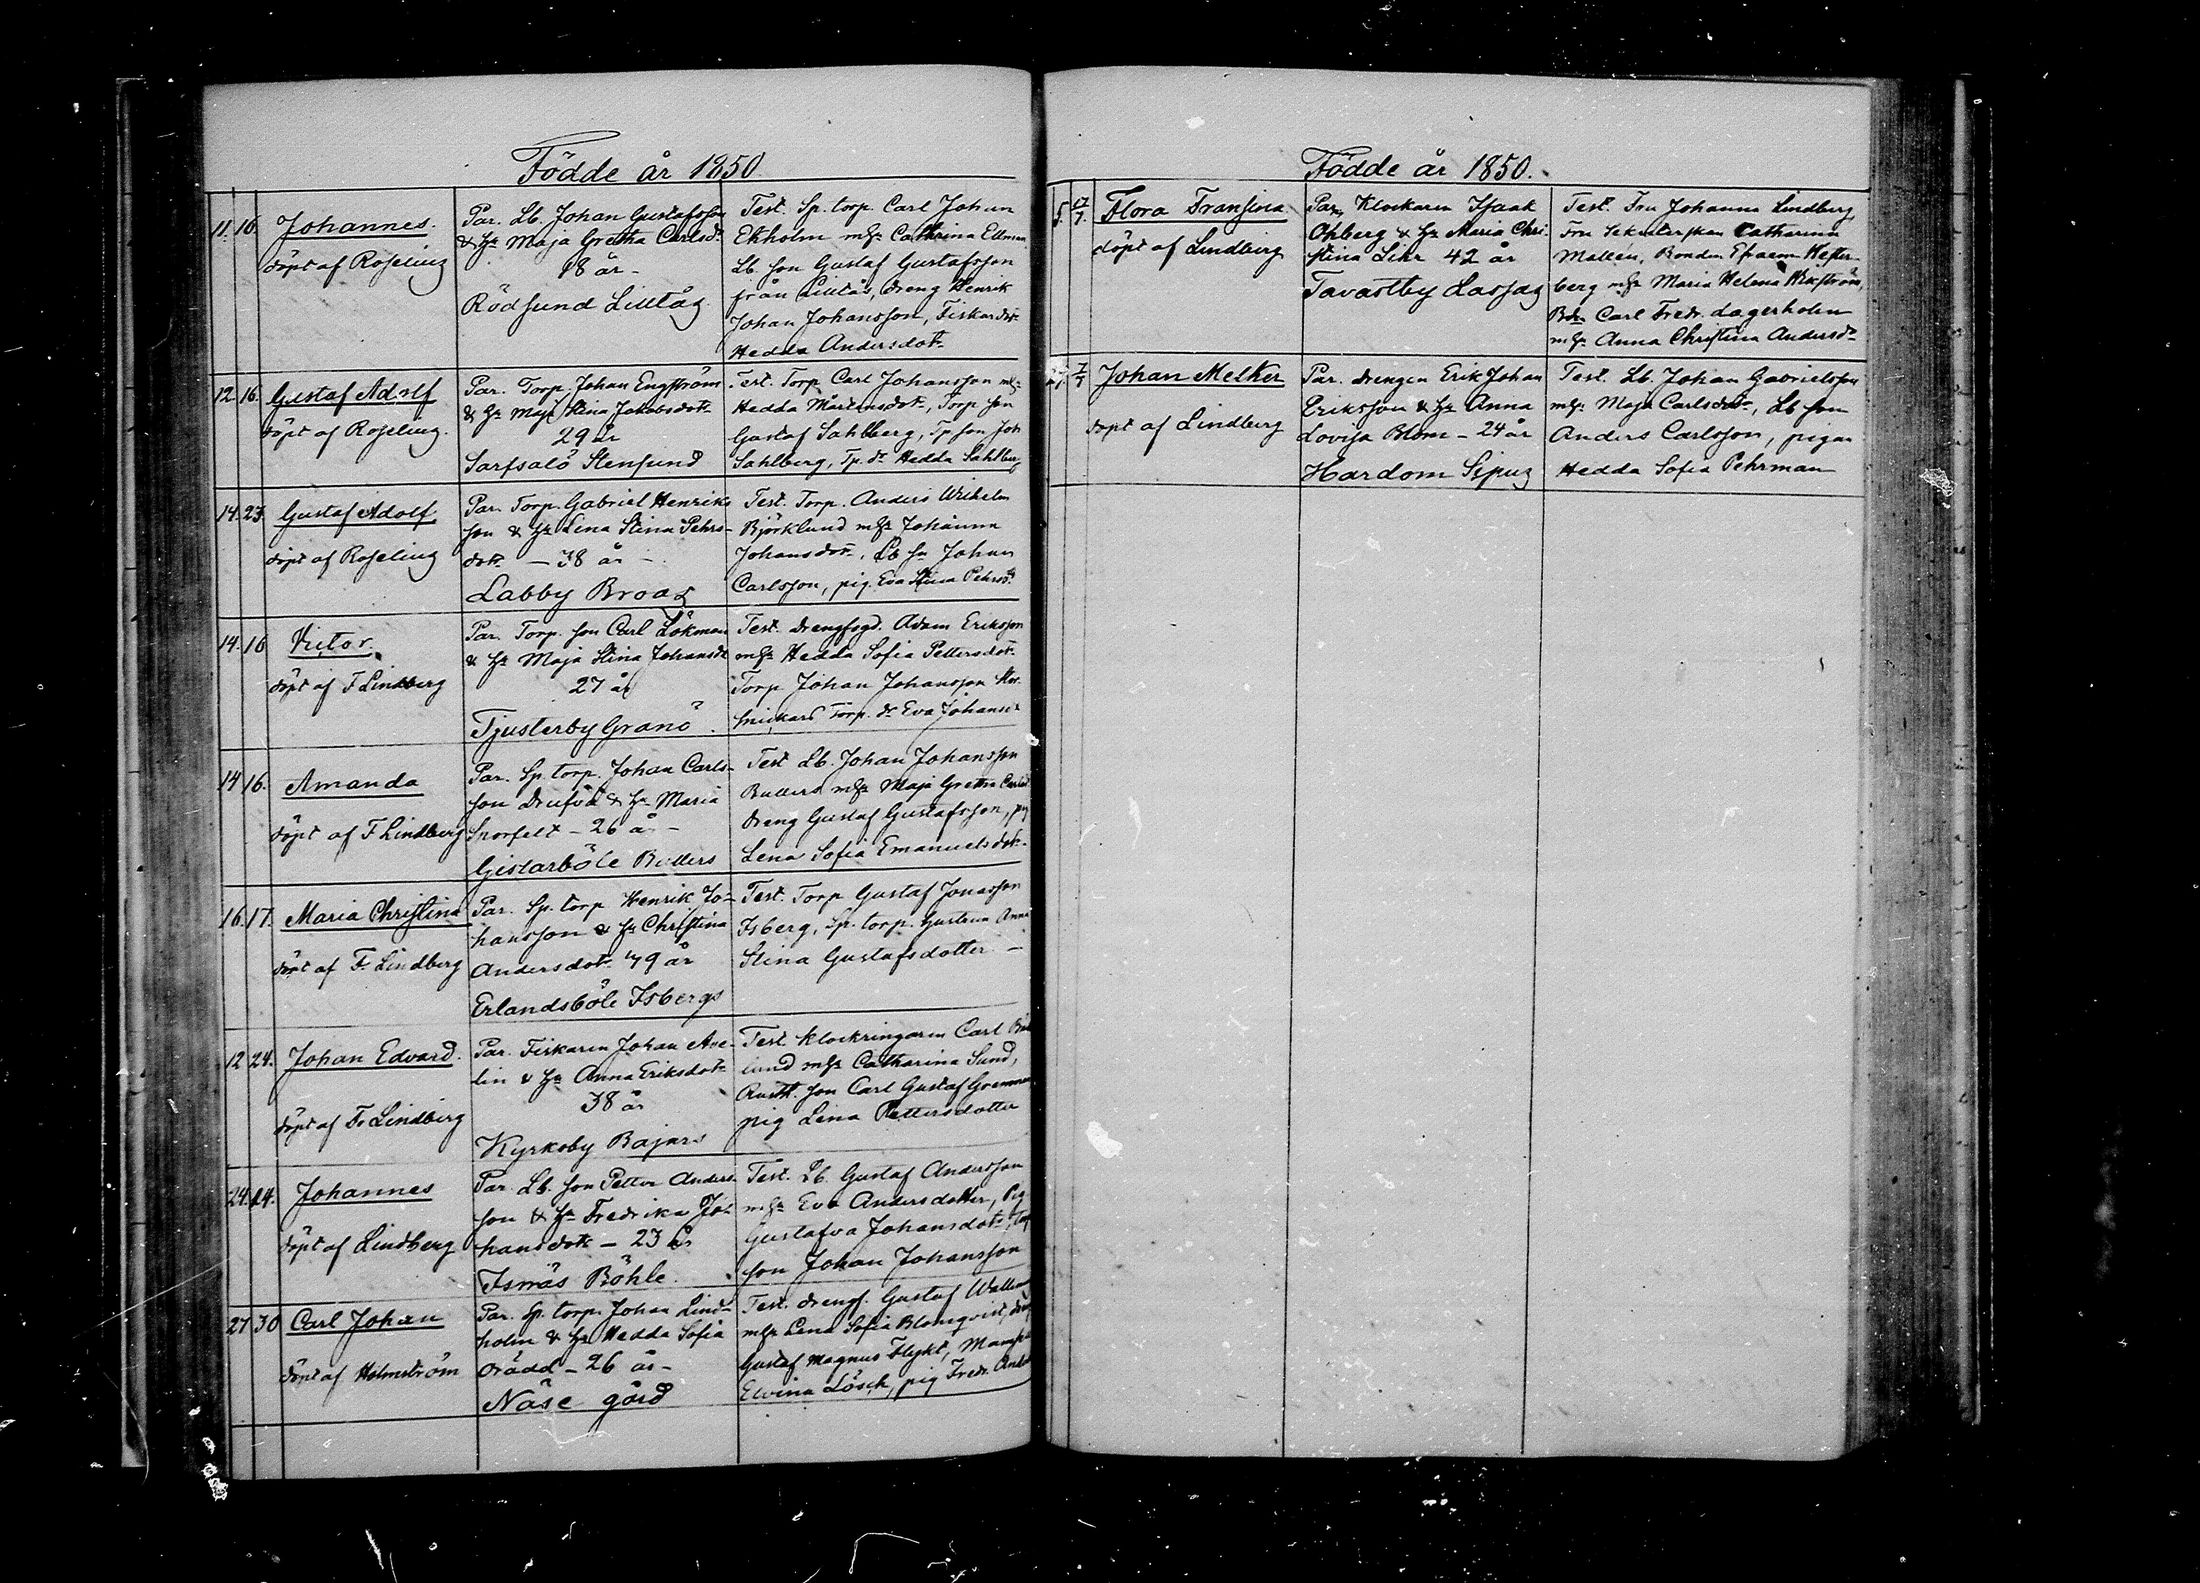 Födde år 1850.
11. 16. Johannes.
döpt af Roseling
Par. Lb. Johan Gustafsson
& Hr Maja Gretha Carlsdr
18 år -
Rödsund Lilltåg
Test. Sp. torp. Carl Johan
Ekholm mhr Cathrina Ellman
Lb. son Gustaf Gustafsson
från Lilltås, dreng Henrik
Johan Johansson, Fiskardotr
Hedda Andersdotr
12. 16. Gustaf Adolf
döpt af Roseling.
Par. Torp. Johan Engström
& Hr Maja Stina Jakobsdotr
29 år
Sarfsalö Stensund
Test. Torp Carl Johansson mhr
Hedda Mårtensdotr, Torp son
Gustaf Sahlberg, Tp son Joh
Sahlberg, Tp. dr Hedda Sahlberg
14. 23. Gustaf Adolf
döpt af Roseling
Par. Torp. Gabriel Henriks
son & Hr Lena Stina Pehrs-
dotr - 38 år -
Labby Broas
Test. Torp. Anders Wilhelm
Björklund mhr Johanna
Johansdotr, Lb sn Johan
Carlsson, pig. Eva Stina Pehrsd.
14. 16 Victor.
döpt af F Lindberg
Par. Torp. son Carl Lökman
& Hr Maja Stina Johansdr
27 år
Tjusterby Granö.
Test. Drengfogd. Adam Eriksson
mhr Hedda Sofia Pettersdotr
Torp Johan Johansson
snickars Torp. dr Eva Johansdr
14 16. Amanda
döpt af F Lindberg
Par. Sp. torp. Johan Carls-
son Drufva & Hr Maria
Snorfelt - 26 år -
Gislarböle Bullers
Test Lb. Johan Johansson
Bullers mhr Maja Gretha Carlsd
dreng Gustaf Gustafsson, pig
Lena Sofia Emanuelsdotr
16. 17. Maria Christina
döpt af F. Lindberg
Par. Sp. torp Henrik Jo-
hansson & Hr Christina
Andersdotr 49 år
Erlandsböle Isbergs
Test. Torp Gustaf Jonasson
Isberg, Sp. torp. hustrun Anna
Stina Gustafsdotter -
12 24. Johan Edvard.
döpt af F. Lindberg
Par. Fiskaren Johan Ave-
lin & Hr Anna Eriksdotr
38 år
Kyrkoby Bajars
Test Klockringaren Carl
lund mhr Catharina Sund,
Rusth. son Carl Gustaf
pig Lena Pettersdotter
24. 24. Johannes
döpt af Lindberg
Par. Lb. son Petter Anders-
son & Hr Fredrika Jo-
hansdotr - 23 år
Isnäs Böhle.
Test. Lb. Gustaf Andersson
mhr Eva Andersdotter, Pig
Gustafva Johansdotr, torp
son Johan Johansson
27 30 Carl Johan
döpt af Holmström
Par. Sp. torp. Johan Lind-
holm & Hr Hedda Sofia
Orädd - 26 år -
Näse gård
Test. drengf. Gustaf
mhr Lena Sofia Blomqvist, dreng
Gustaf Magnus Flykt,
Elvina Lösch, pig Fredr.
Födde år 1850.
5. 17/7. Flora Fransina
döpt af Lindberg
Par. Klockaren Isaak
Ohberg & Hr Maria Chri-
stina Lihr 42 år
Tavastby Lassas
Test. Fru Johanna Lindberg,
Fru Sekreterskan Catharina
Malleen, Bonden Efraem Hester-
berg mhr Maria Helena Wikström,
Bdn Carl Fredr. Lagerholm
mhr Anna Christina Andersdr
7/7 Johan Melker
döpt af Lindberg
Par. drengen Erik Johan
Eriksson & Hr Anna
Lovisa Blom - 24 år
Hardom Sipus
Test. Lb. Johan Gabrielsson
mhr Maja Carlsdotr, Lb son
Anders Carlsson, pigan
Hedda Sofia Pehrman